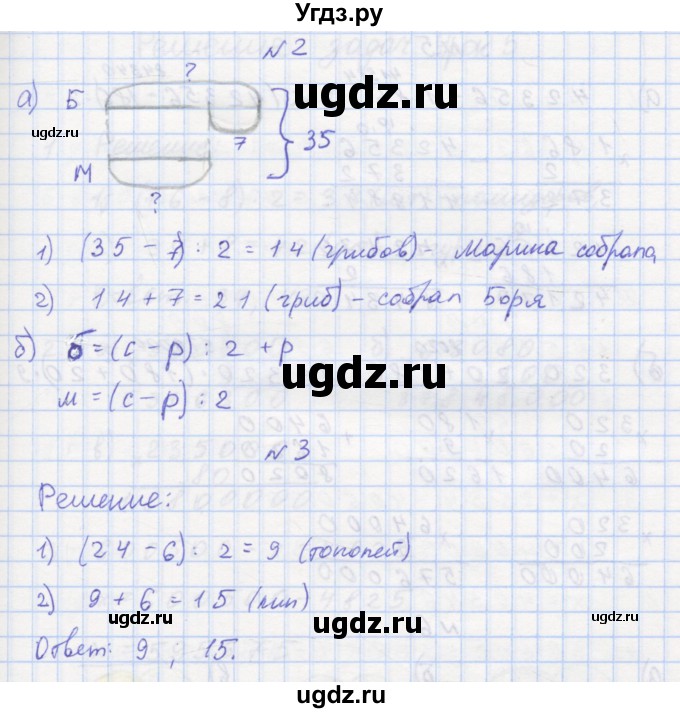 Угдз.ру
№2
?
а) Б
ugdz.ru
ugdz.ru
7
35
М
?
1) (35 - 7) : 2 = 14 (грибов) - Марина собрала
2) 14 + 7 = 21 (гриб) - собрал Боря
ugdz.ru
б) б = (с - р) : 2 + р
ugdz.ru
м = (с - р) : 2
№3
Решение:
1) (24 - 6) : 2 = 9 (тополей)
2) 9 + 6 = 15 (лип)
ugdz.ru
ugdz.ru
ugdz.ru
Ответ: 9 ; 15.
ugdz.ru